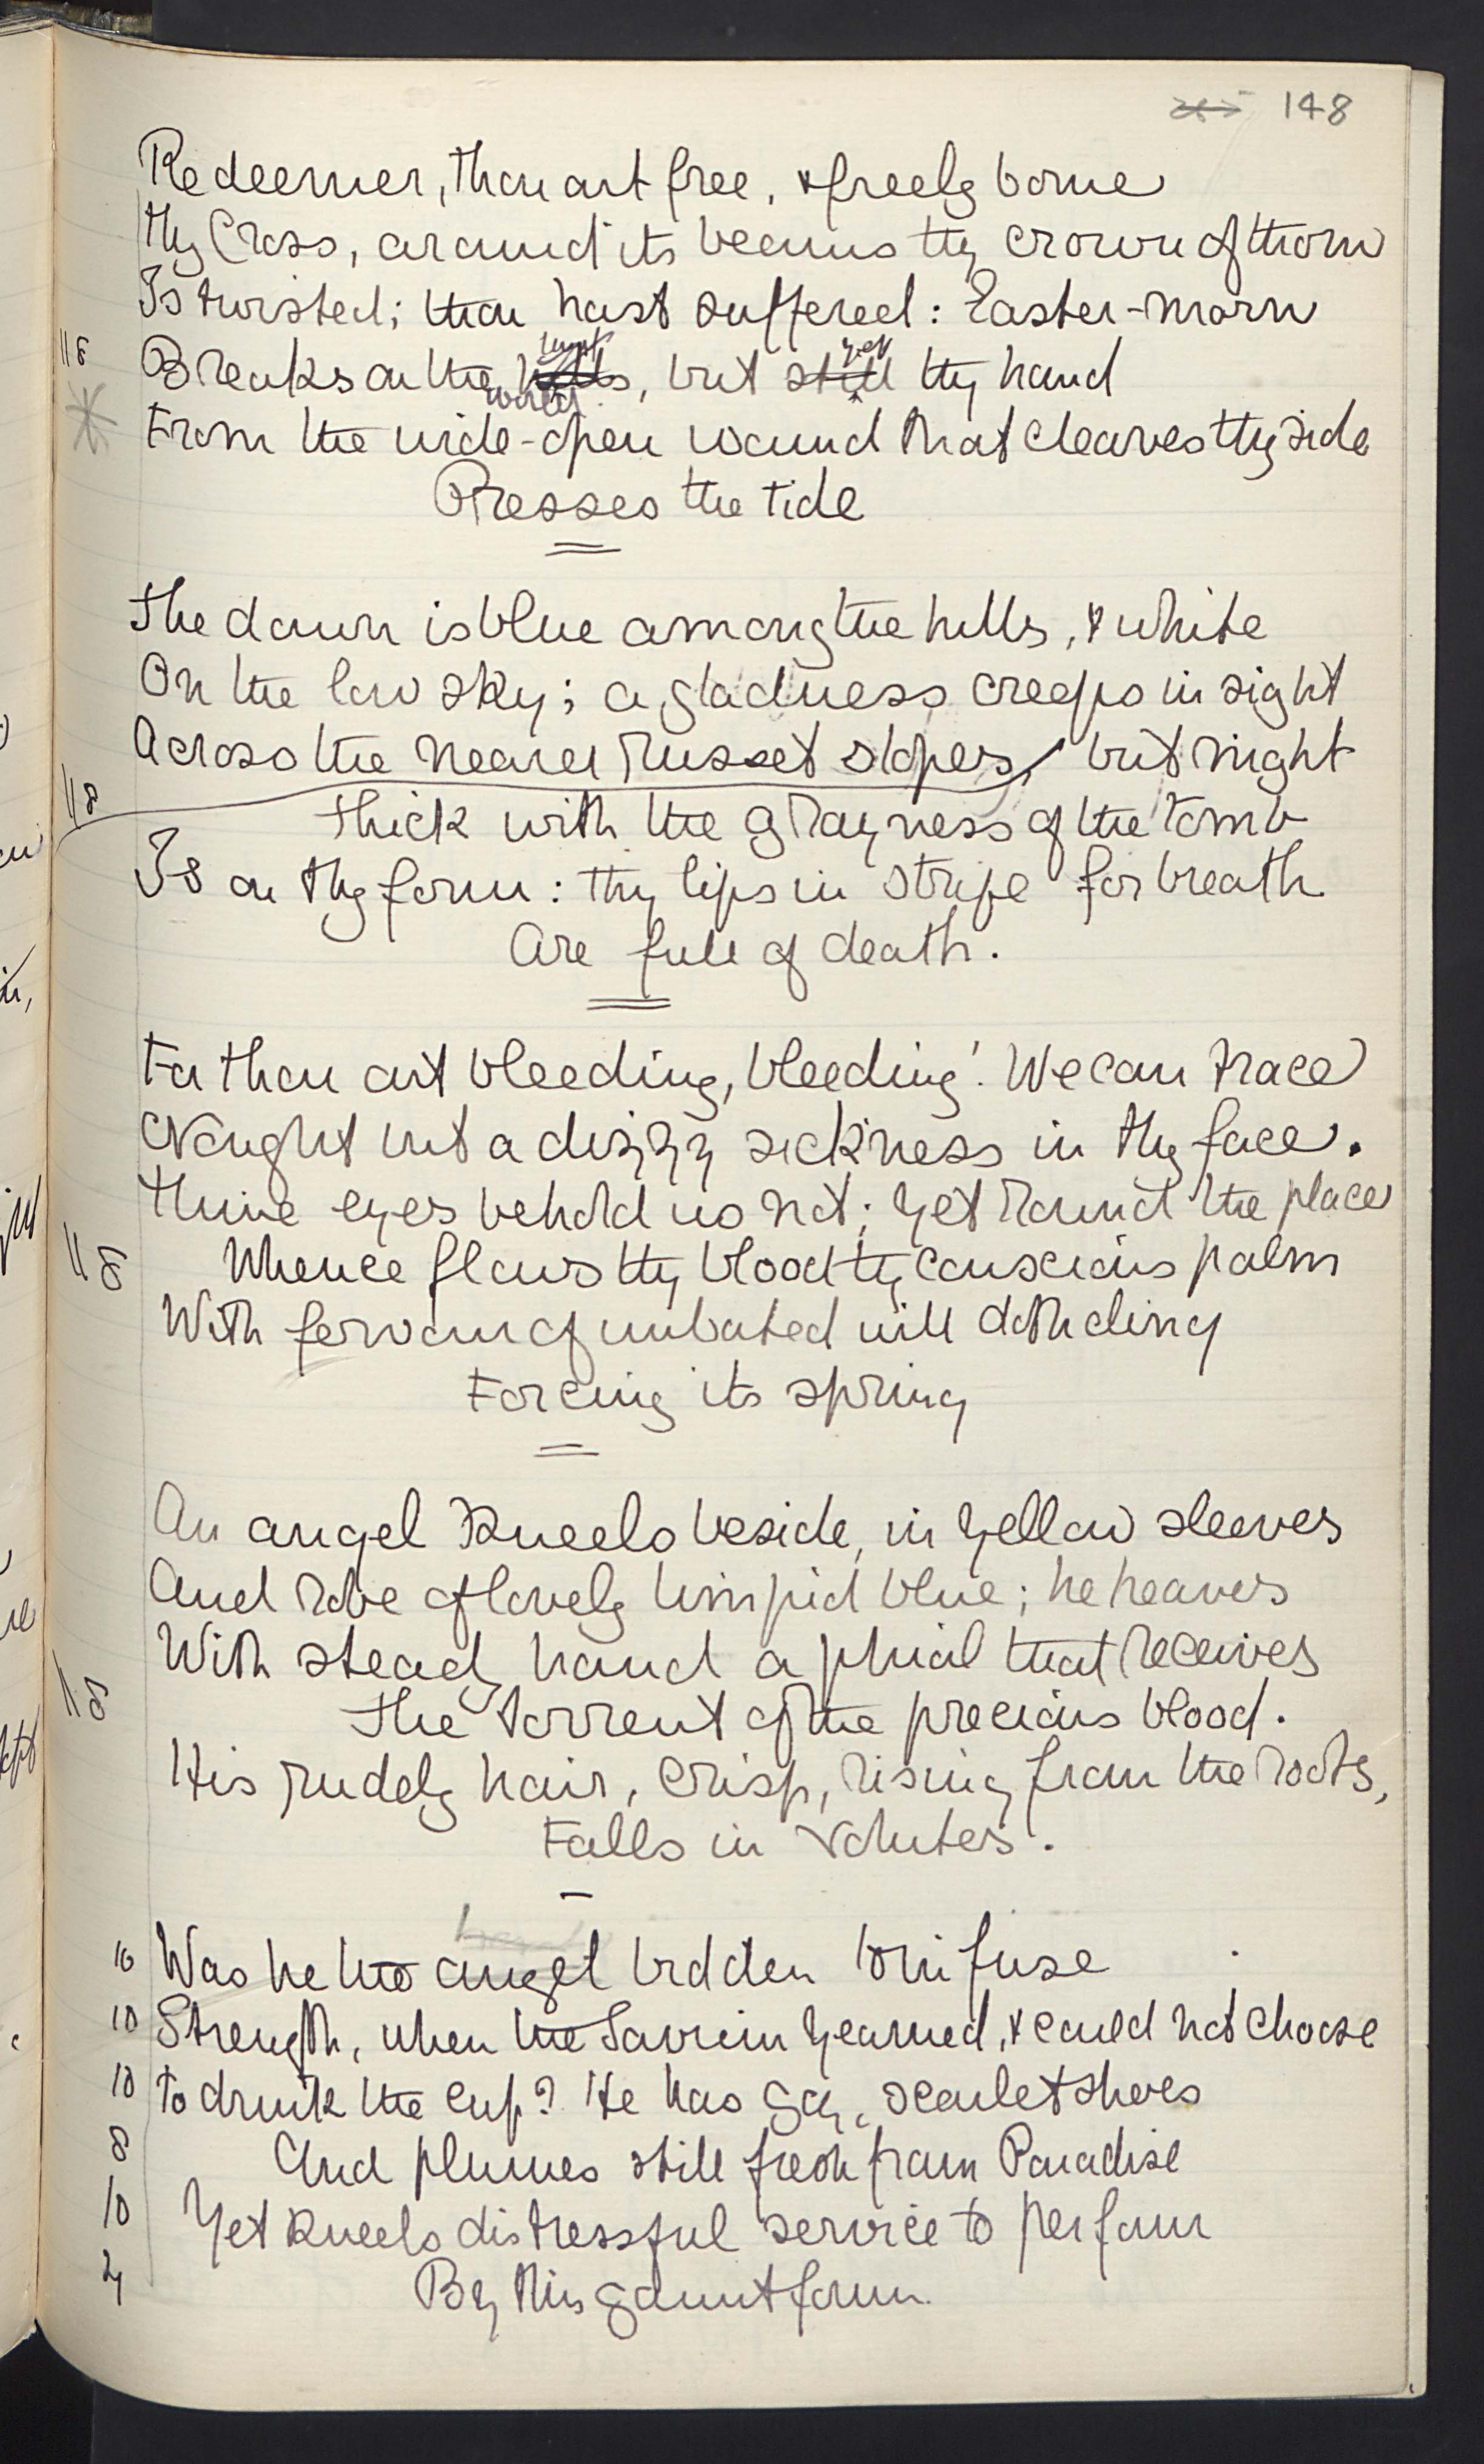 148
Redeemer, thou art free, & freely borne
Thy Cross, around its beams thy crown of thorn
Is twisted; thou hast suffered: Easter-morn
Breaks on the world, but yet thy hand
From the wide-open wound that cleaves thy side
Presses the tide
The dawn is blue among the hills, & white
On the low sky; a gladness creeps in sight
Across the nearer russet slopes, but night
Thick with the grayness of the tomb
Is on thy form: thy lips in strife for breath
Are full of death.
For thou art bleeding, bleeding! We can trace
Nought but a dizzy sickness in thy face.
Thine eyes behold us not; yet round the place
Whence flows thy blood thy conscious palm
With fervour of unbated will doth cling
Forcing its spring
An angel kneels beside, in yellow sleeves
And robe of lovely limpid blue; he heaves
With steady hand a phial that receives
The torrent of the precious blood.
His rudely hair, crisp, rising from the roots,
Falls in volutes.
10 Was he the angel bidden to infuse
10 Strength, when the Saviour yearned, & could not choose
10 To drink the cup? He has gay, scarlet shoes
8 And plumes still fresh from Paradise
10 Yet kneels distressful service to perform
4 By this gaunt form.